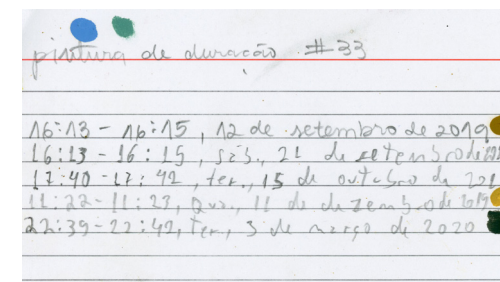 pintura de duração #33
16:13 - 16:15, 12 de setembro de 2019
16:13 - 16:15, sáb., 21 de setembro de
17:40 - 17:42, ter., 15 de outubro de 201
11:22 - 11:23, qua, 11 de dezembro de 2019
22:39 - 22:42, ter, 3 de março de 2020